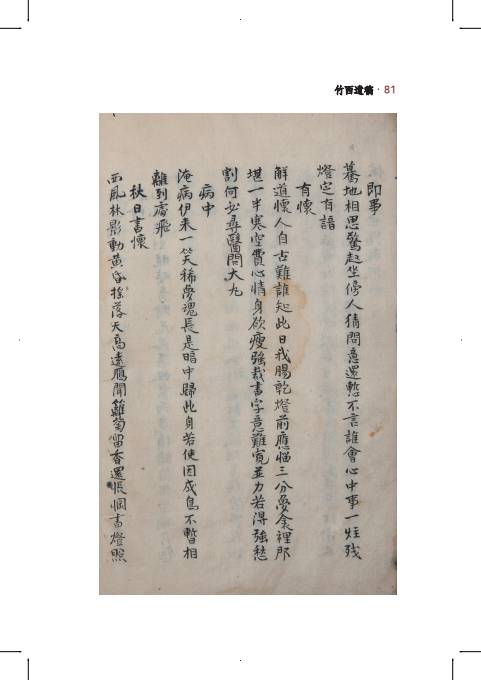 竹西遺稿 · 81
即事
驀地相思驚起坐傍人猜問意還慙不言誰會心中事一炷残
燈定有諳
有懷
解道懷人自古難誰知此日我腸乾燈前應惱三分夢衾裡那
堪一半寒空費心情身欲瘦強裁書字意難寬並力若得強愁
割何必尋醫問大丸
病中
淹病伊来一笑稀夢魂長是暗中歸此身若使因成鳥不暫相
離到處飛
秋日書懷
西風林影動黃昏搖落天高遠鴈聞籬菊留香還悵惘書燈照